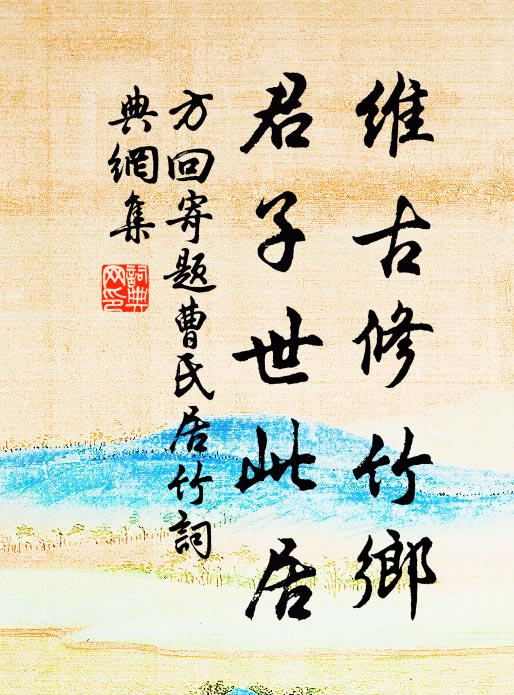 維古修竹鄉
君子世此居
方回寄題曹氏居竹詞
典網集
詞典網印